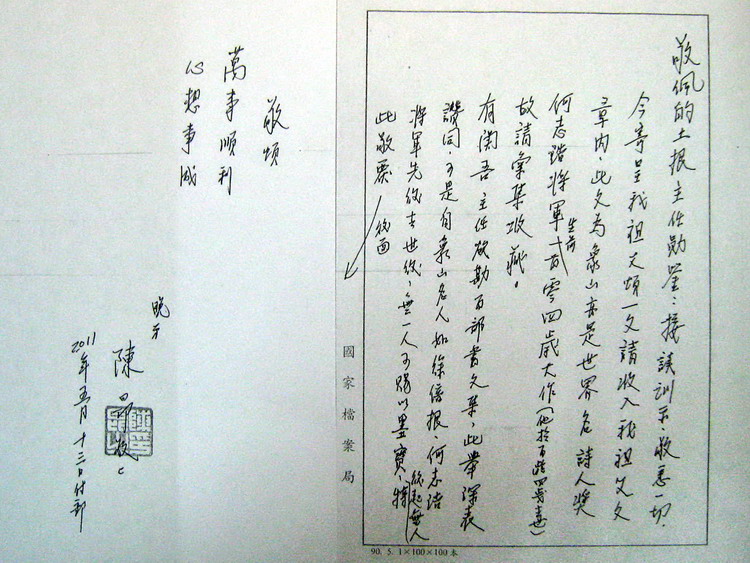 敬佩的土根主任勛鑒：接談訓示敬悉一切．
今寄呈我祖父頌一文請收入我祖父文
章內，此文為象山亦是世界名詩人獎
何志浩將軍生前貳百零四歲大作（他於百踏四歲喜）
故請彙集收藏。
有関吾主任欲勘百部書文集，此舉深表
讚同，可是自象山名人如徐信根、何志浩
將軍先後去世後，無一人可賜以墨寶，特
後起無人
此敬稟 後面
敬頌
萬事順利
心想事成
晚
陳
2011年五月十三日付郵
國家檔案局
90. 5. 1×100×100本